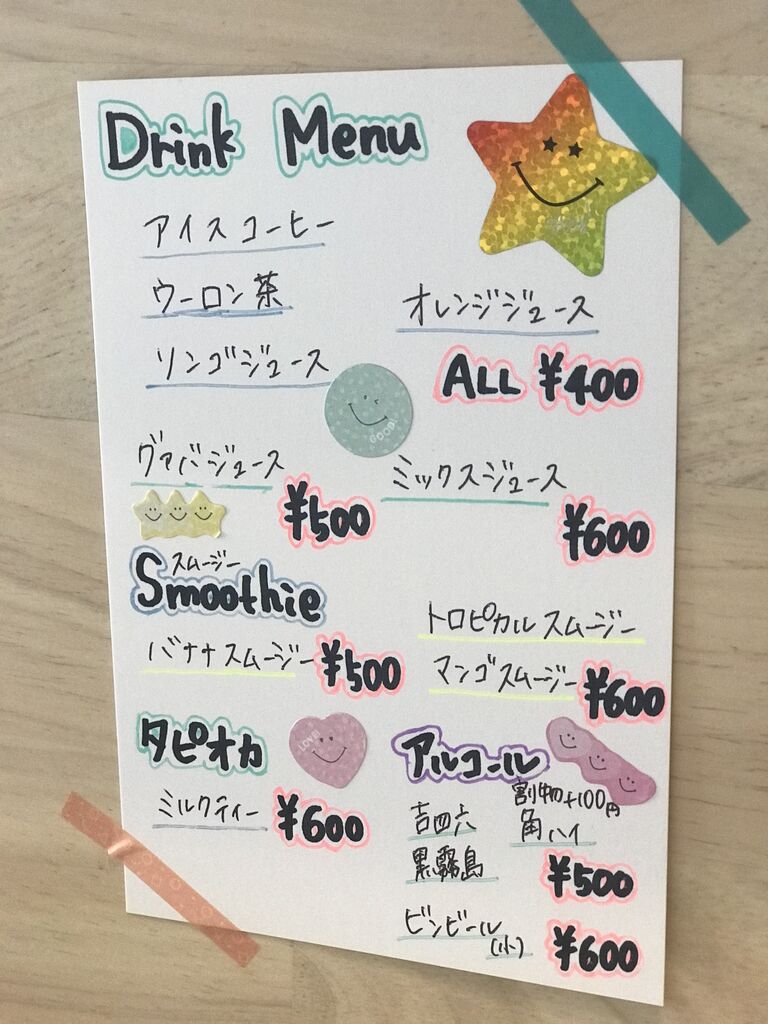 Drink Menu
アイスコーヒー
ウーロン茶
オレンジジュース
リンゴジュース
ALL ¥400
GOOD!
グァバジュース
ミックスジュース
¥500
¥600
スムージー
Smoothie
トロピカルスムージー
バナナスムージー ¥500
マンゴスムージー ¥600
タピオカ
LOVE!
アルコール
割物+100円
ミルクティー ¥600
吉四六 角ハイ
黒霧島 ¥500
ビンビール(小) ¥600